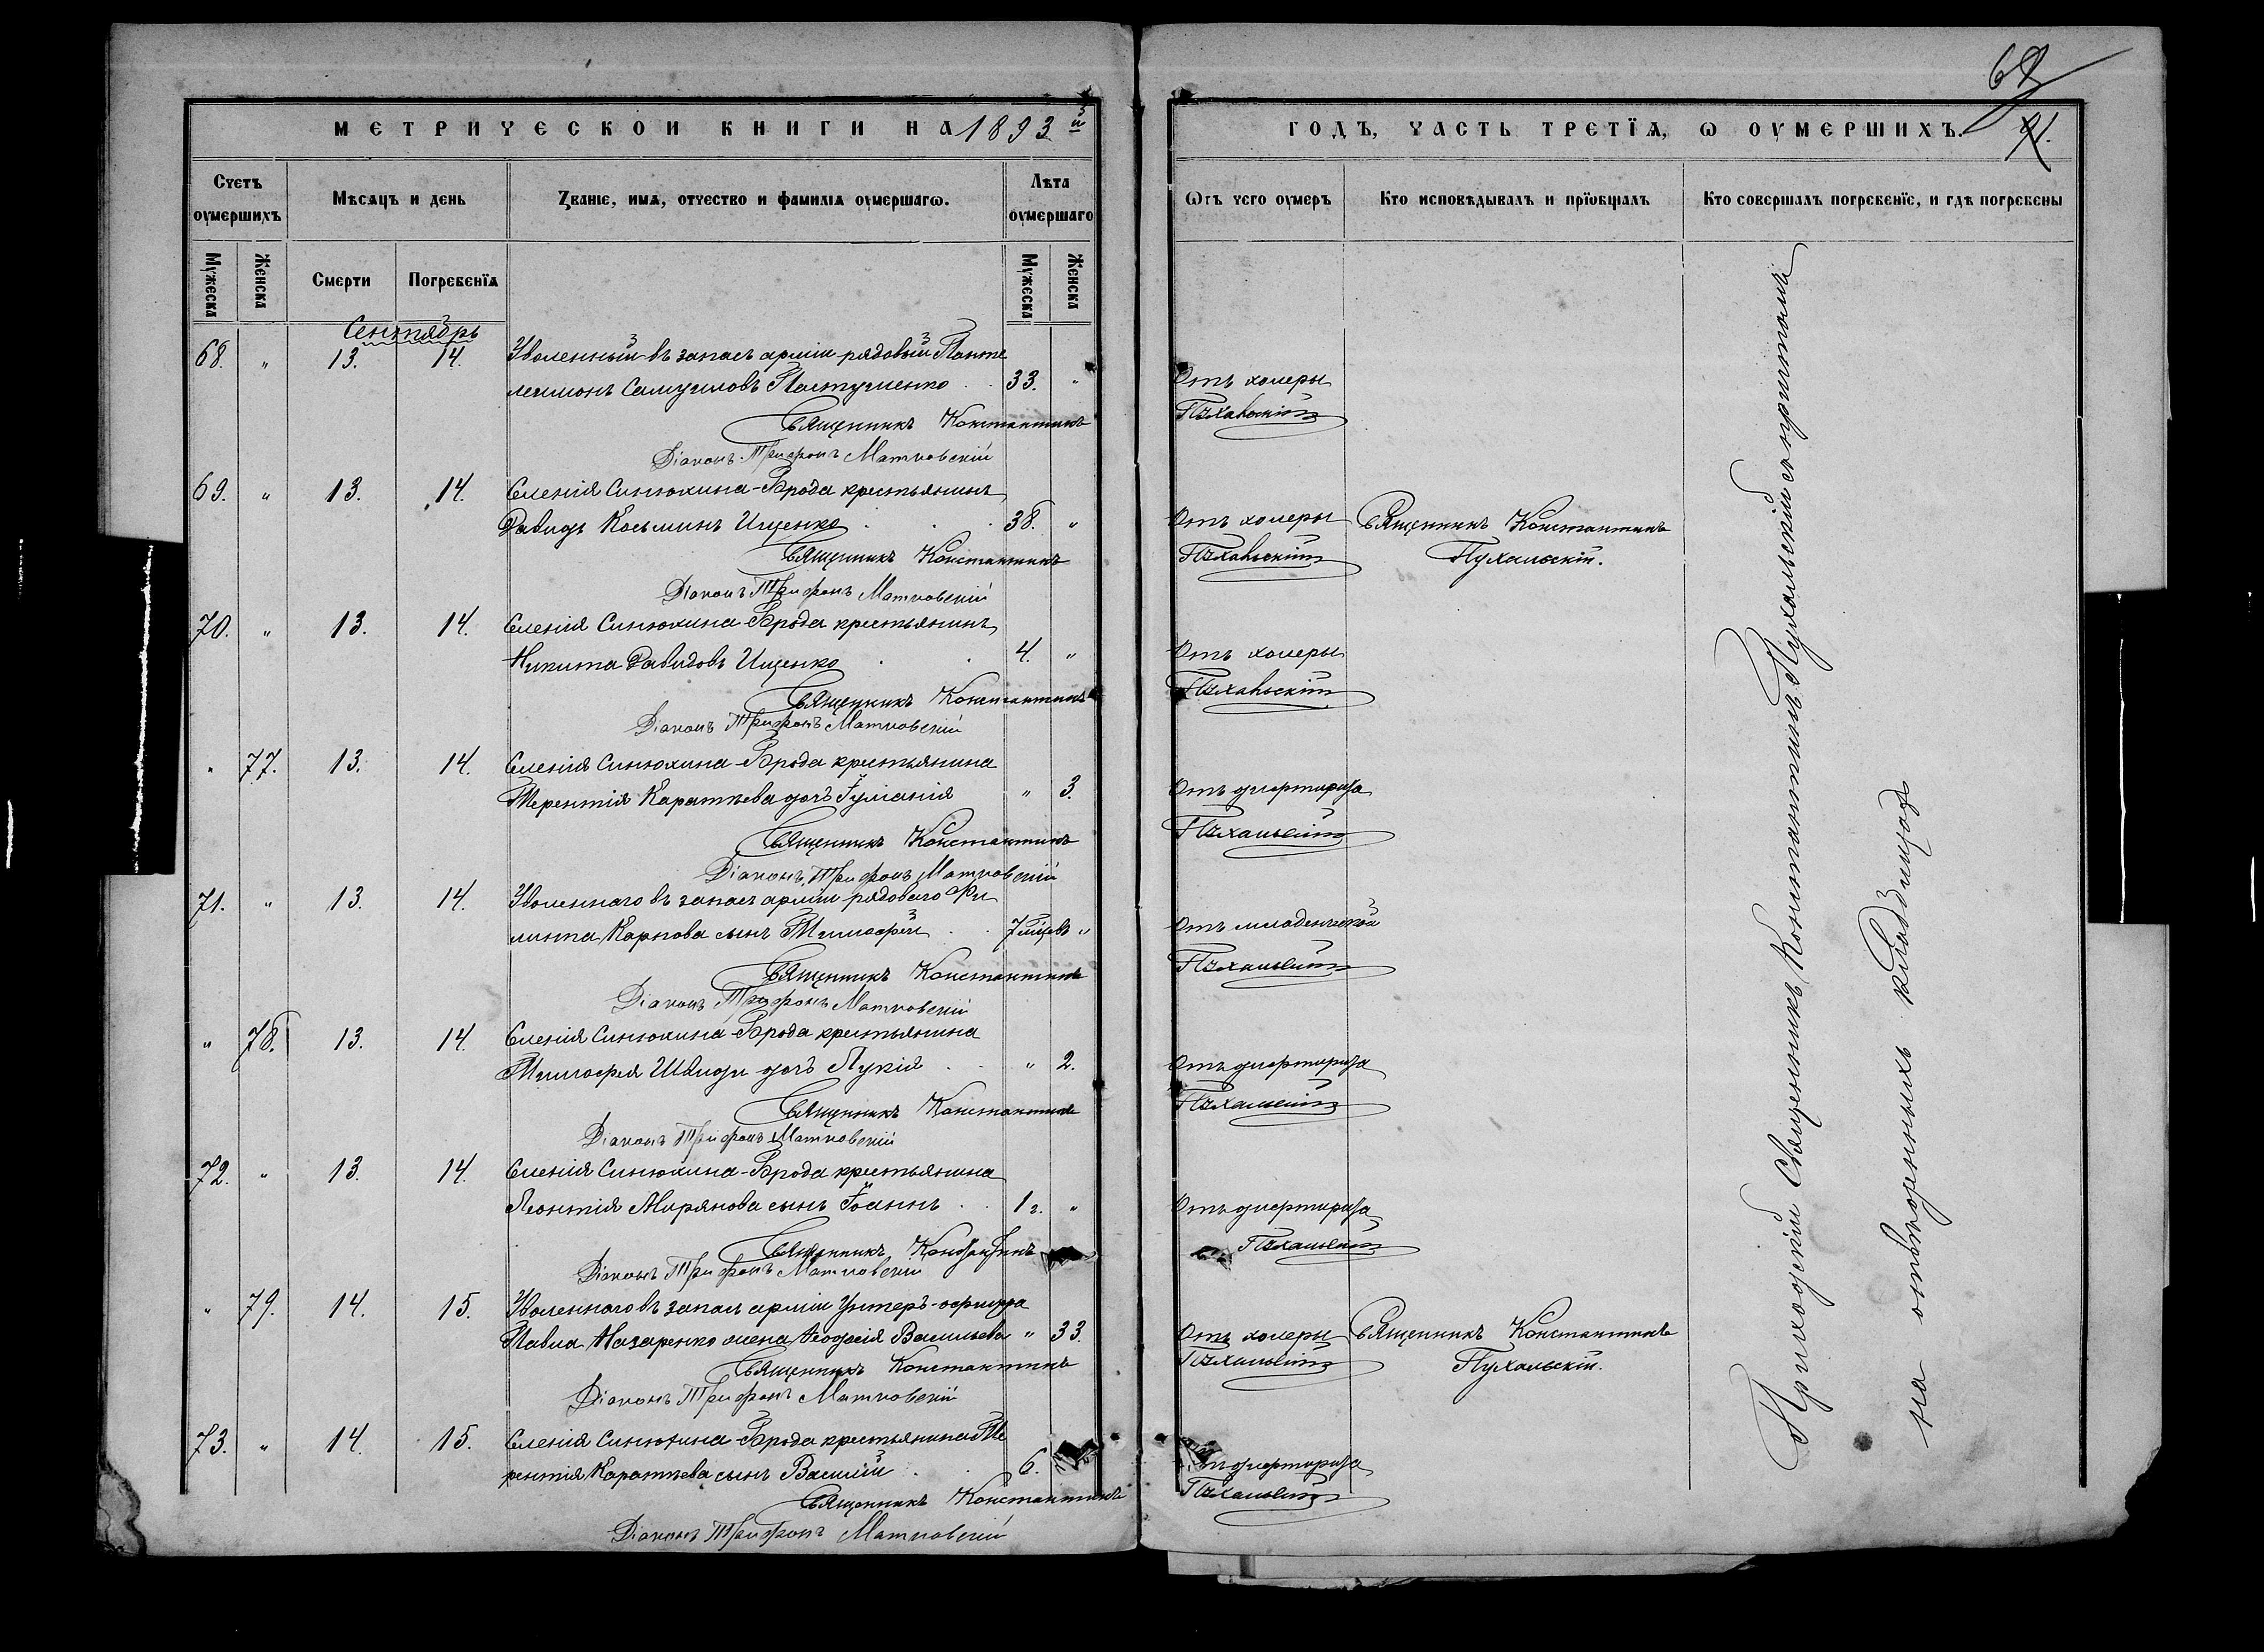 МЕТРИЧЕСКОЙ КНИГИ НА 1893 й
ГОДЪ, ЧАСТЬ ТРЕТЇѦ, Ѡ ОУМЕРШИХЪ.
Счетъ оумершихъ
Мѣсѧцъ и день
Званіе, имѧ, отчество и фамиліѧ оумершагѡ.
Лѣта оумершаго
Ѿ чего оумеръ
Кто исповѣдывалъ и прїобщалъ
Кто совершалъ погребенїе, и гдѣ погребены
Мужеска
Женска
Смерти
Погребенїѧ
Мужеска
Женска
Сентябрь
68. " 13. 14. Уволенный въ запасъ арміи рядовый Панте
леимонъ Самуиловъ Пастушенко 33. " Отъ холеры
Священникъ Константинъ Пухальскій
Діаконъ Трифонъ Матковскій
69. " 13. 14. Селенія Синюхина-Брода крестьянинъ
Давидъ Косьминъ Ищенко 38. " Отъ холеры Священникъ Константинъ
Священникъ Константинъ Пухальскій Пухальскій.
Діаконъ Трифонъ Матковскій
70. " 13. 14. Селенія Синюхина-Брода крестьянинъ
Никита Давидовъ Ищенко 4. " Отъ холеры
Священникъ Константинъ Пухальскій
Діаконъ Трифонъ Матковскій
" 77. 13. 14. Селенія Синюхина-Брода крестьянина
Терентія Каратѣева дочь Іуліанія " 3. Отъ дифтирита
Священникъ Константинъ Пухальскій
Діаконъ Трифонъ Матковскій
71. " 13. 14. Уволеннаго въ запасъ арміи рядоваго Фи
липпа Карпова сынъ Тимофей 7 мѣсяцевъ " Отъ младенческой
Священникъ Константинъ Пухальскій
Діаконъ Трифонъ Матковскій
" 78. 13. 14. Селенія Синюхина-Брода крестьянина
Тимофея Швиди дочь Лукія " 2. Отъ дифтирита
Священникъ Константинъ Пухальскій
Діаконъ Трифонъ Матковскій
72. " 13. 14. Селенія Синюхина-Брода крестьянина
Леонтія Мирянова сынъ Іоаннъ 1 г. " Отъ дифтирита
Священникъ Константинъ Пухальскій
Діаконъ Трифонъ Матковскій
" 79. 14. 15. Уволеннаго въ запасъ арміи Унтеръ-офицера
Павла Назаренко жена Ѳеодосія Васильева " 33. Отъ холеры Священникъ Константинъ
Священникъ Константинъ Пухальскій Пухальскій.
Діаконъ Трифонъ Матковскій
73. " 14. 15. Селенія Синюхина-Брода крестьянина Те
рентія Каратѣева сынъ Василій 6. Отъ дифтирита
Священникъ Константинъ Пухальскій
Діаконъ Трифонъ Матковскій
Приходскій Священникъ Константинъ Пухальскій съ причтомъ
на отведенныхъ кладбищахъ